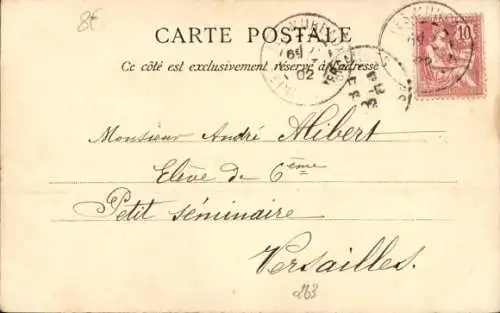 8€
CARTE POSTALE
Ce côté est exclusivement réservé à l'adresse
10
02
Monsieur André Alibert
Elève de 6ème
Petit séminaire
Versailles.
263